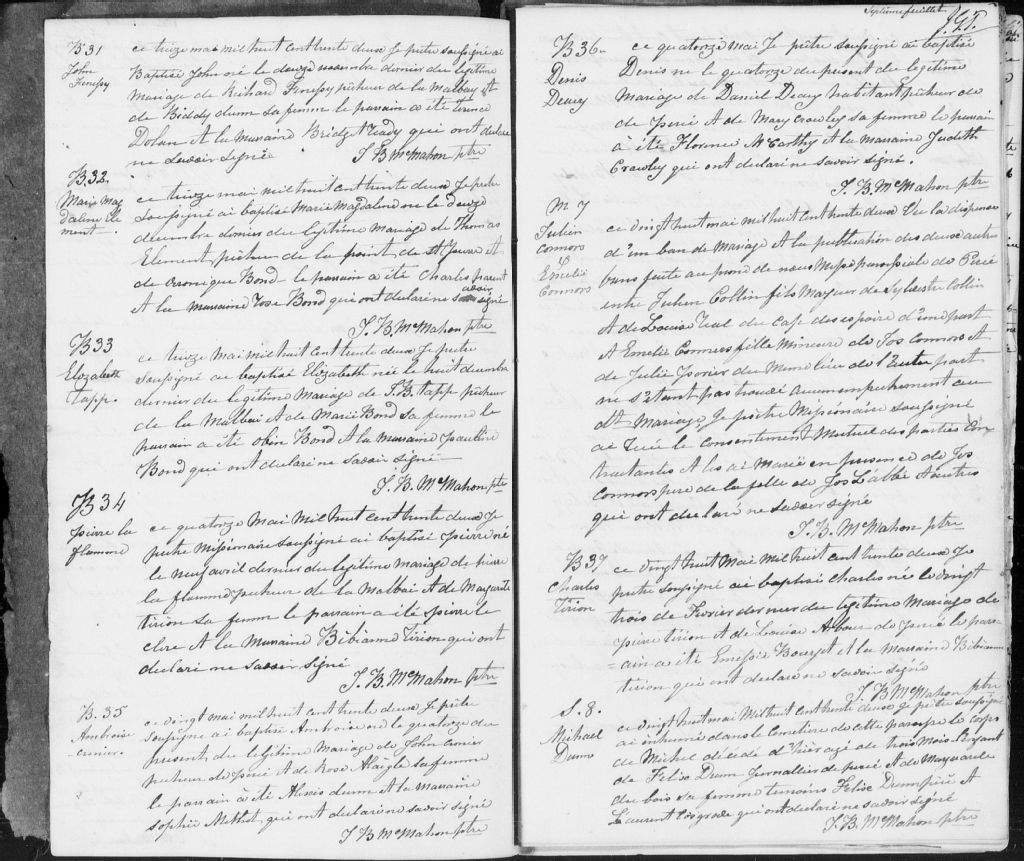 B 31
John
Finessy
ce treize mai mil huit cent trente deux Je prêtre soussigné ai
Baptisé John né le douze novembre dernier du legitime
Mariage de Richard Finessy pêcheur de la Malbay et
de Biddy dunn sa femme le parain a été
Dolan et la Marraine Bridget Ready qui ont declaré
ne savoir signé
J. B McMahon ptre
B 32.
Marie Mag
daline Cle
ment.
ce treize mai mil huit cent trente deux Je prêtre
soussigné ai baptisé Marie Magdaline né le douze
decembre dernier du legitime mariage de Thomas
Element pêcheur de la point de St
et de Bond le parrain a été Charles parent
et la Marraine Rose Bond qui ont declaré ne savoir signé
J. B. McMahon ptre
B 33
Elizabeth
tapp.
ce treize mai mil huit cent trente deux Je prêtre
soussigné ai baptisé Elizabeth née le huit decembre
dernier du legitime Mariage de J. B. tapp pêcheur
de la Malbai et de Marie Bond sa femme le
parrain a été Bond et la Marraine pauline
Bond qui ont declaré ne savoir signé
J. B. McMahon ptre
B 34
pierre la
flamme
ce quatorze Mai Mil huit cent trente deux Je
prêtre Missionaire soussigné ai baptisé pierre né
le neuf avril dernier du legitime mariage de pierre
la flamme pecheur de la Malbai et de Marguerite
tirion sa femme le parrain a été pierre le
clerc et la Marraine Bibianne Tirion qui ont
declaré ne savoir signé
J. B. McMahon ptre
B. 35
Ambroise
cronier.
ce vingt mai mil huit cent trente deux Je prêtre
soussigné ai baptisé Ambroise né le quatorze du
present, du legitime Mariage de John cronier
pecheur de percé et de Rose sa femme
le parrain à été Alexis dunn et la marraine
sophie Methot, qui ont declaré ne savoir signé
J B McMahon ptre
Septième feuillet
B 36
Denis
Deacy
ce quatorze mai Je prêtre soussigné ai baptisé
Denis né le quatorze du present du legitime
Mariage de Daniel Deacy habitant pêcheur de
de percé et de Mary Crowley sa femme le parrain
a été Florence McCarthy et la marraine Judith
Crawley qui ont declaré ne savoir signé.
J. B. McMahon ptre
M 7
Julien
Connors
&
Emelie
Connors
ce vingt huit mai mil huit cent trente deux Vu la dispense
d'un ban de Mariage et la publication des deux autres
bans faite au prone de nos Messe paroissiale de Percé
entre Julien Collin fils Majeur de Sylvestre Collin
et de Louise du Cap desespoire d'une part
et Emelie Conners fille Mineure de Jos Connors et
de Julie poirier du Meme lieu de l'autre part
ne s'etant pas trouvé aucun empechement au
dit Mariage, Je prêtre Missionaire soussigné
ai recu le consentement Mutuel des parties con
tractantes et les ai Marié en presence de Jos
Connors pere de la fille de Jos L'abbé et autres
qui ont declaré ne savoir signé
J. B. McMahon ptre
B 37
Charles
Tirion
ce vingt huit Mai Mil huit cent trente deux Je
prêtre soussigné ai baptisé Charles né le vingt
trois de Fevrier dernier du legitime Mariage de
pierre tirion et de Louise Arbour de percé le parr
=ain a été Bourget et la Marraine Bibianne
tirion qui ont declaré ne savoir signé
J. B McMahon ptre
S. 8.
Michael
Dunn
ce vingt huit mai Mil huit cent trente deux Je prêtre soussigné
ai inhumé dans le Cemetiere de cette paroisse le corps
de Michel décédé d'hier agé de trois Mois Enfant
de Felix Drum Journallier de percé et de Marguerite
du bois sa femme temoins Felix Drum père et
Laurent qui ont declaré ne savoir signé
J. B. McMahon ptre